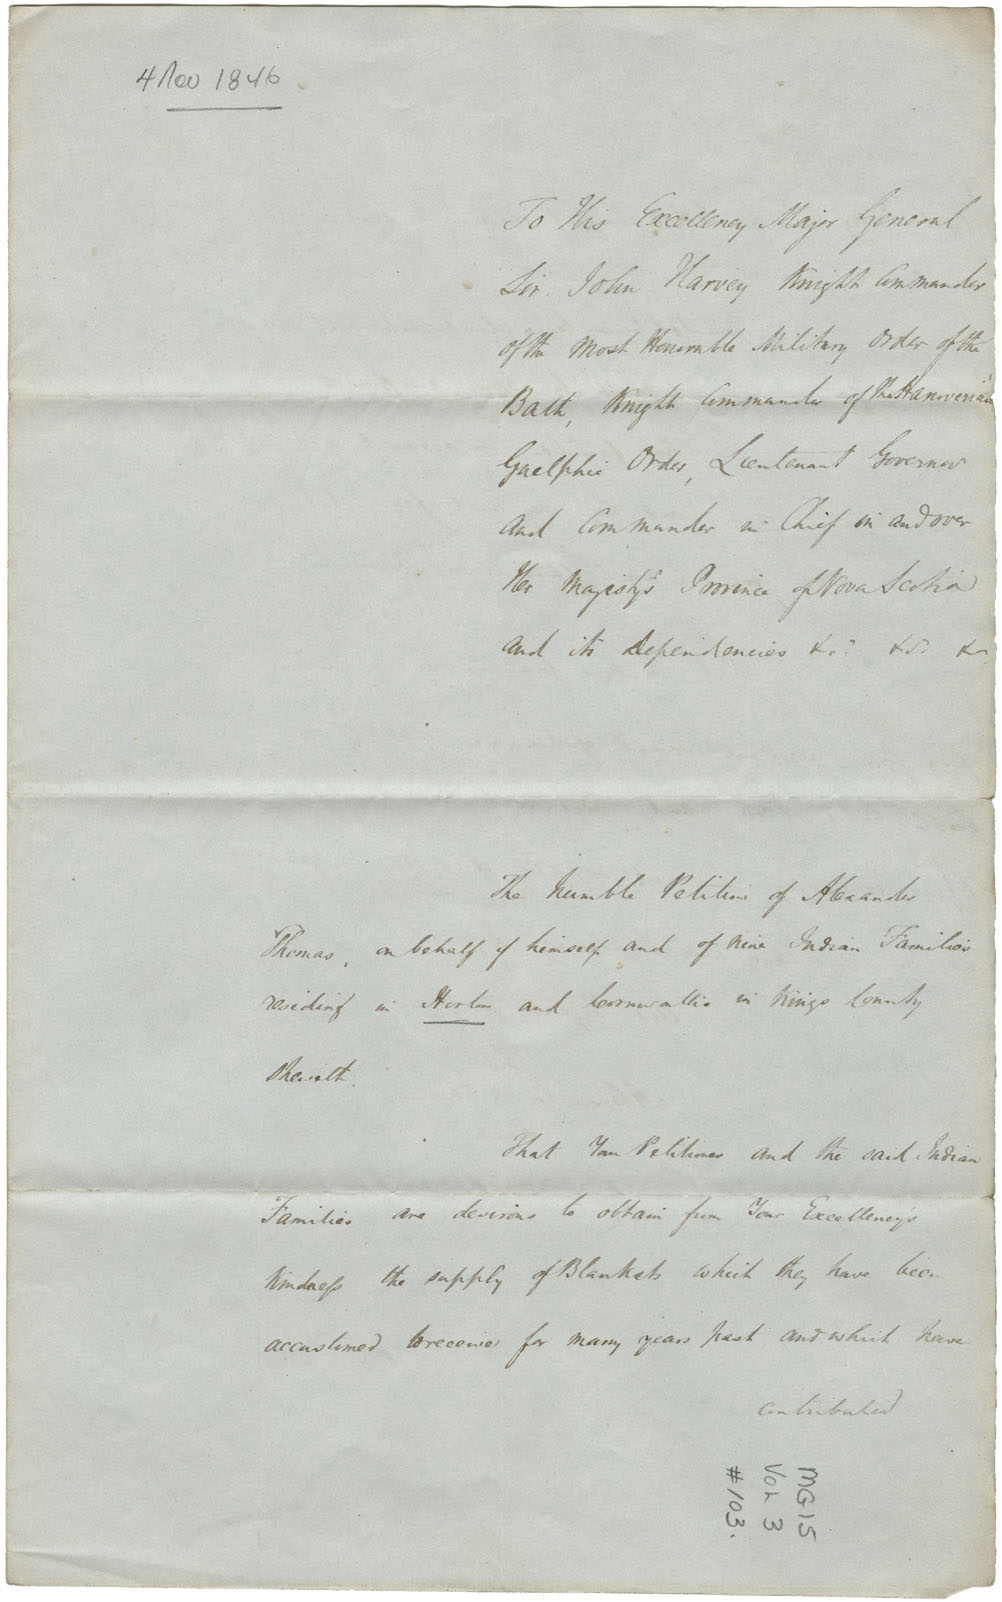 4 Nov 1846
To His Excellency Major General
Sir. John Harvey Knight Commander
of the Most Honorable Military Order of the
Bath, Knight Commander of the Hanoverian
Guelphic Order, Lieutenant Governor
and Commander in Chief in and over
Her Majesty's Province of Nova Scotia
and its Dependencies &c. &c. &c
The humble Petition of Alexander
Thomas, on behalf of himself and of nine Indian Families
residing in Horton and Cornwallis in Kings County
Sheweth.
That Your Petitioner and the said Indian
Families are desirous to obtain from Your Excellency's
kindness the supply of Blankets which they have been
accustomed to receive for many years past and which have
contributed
MG15
Vol 3
#103.